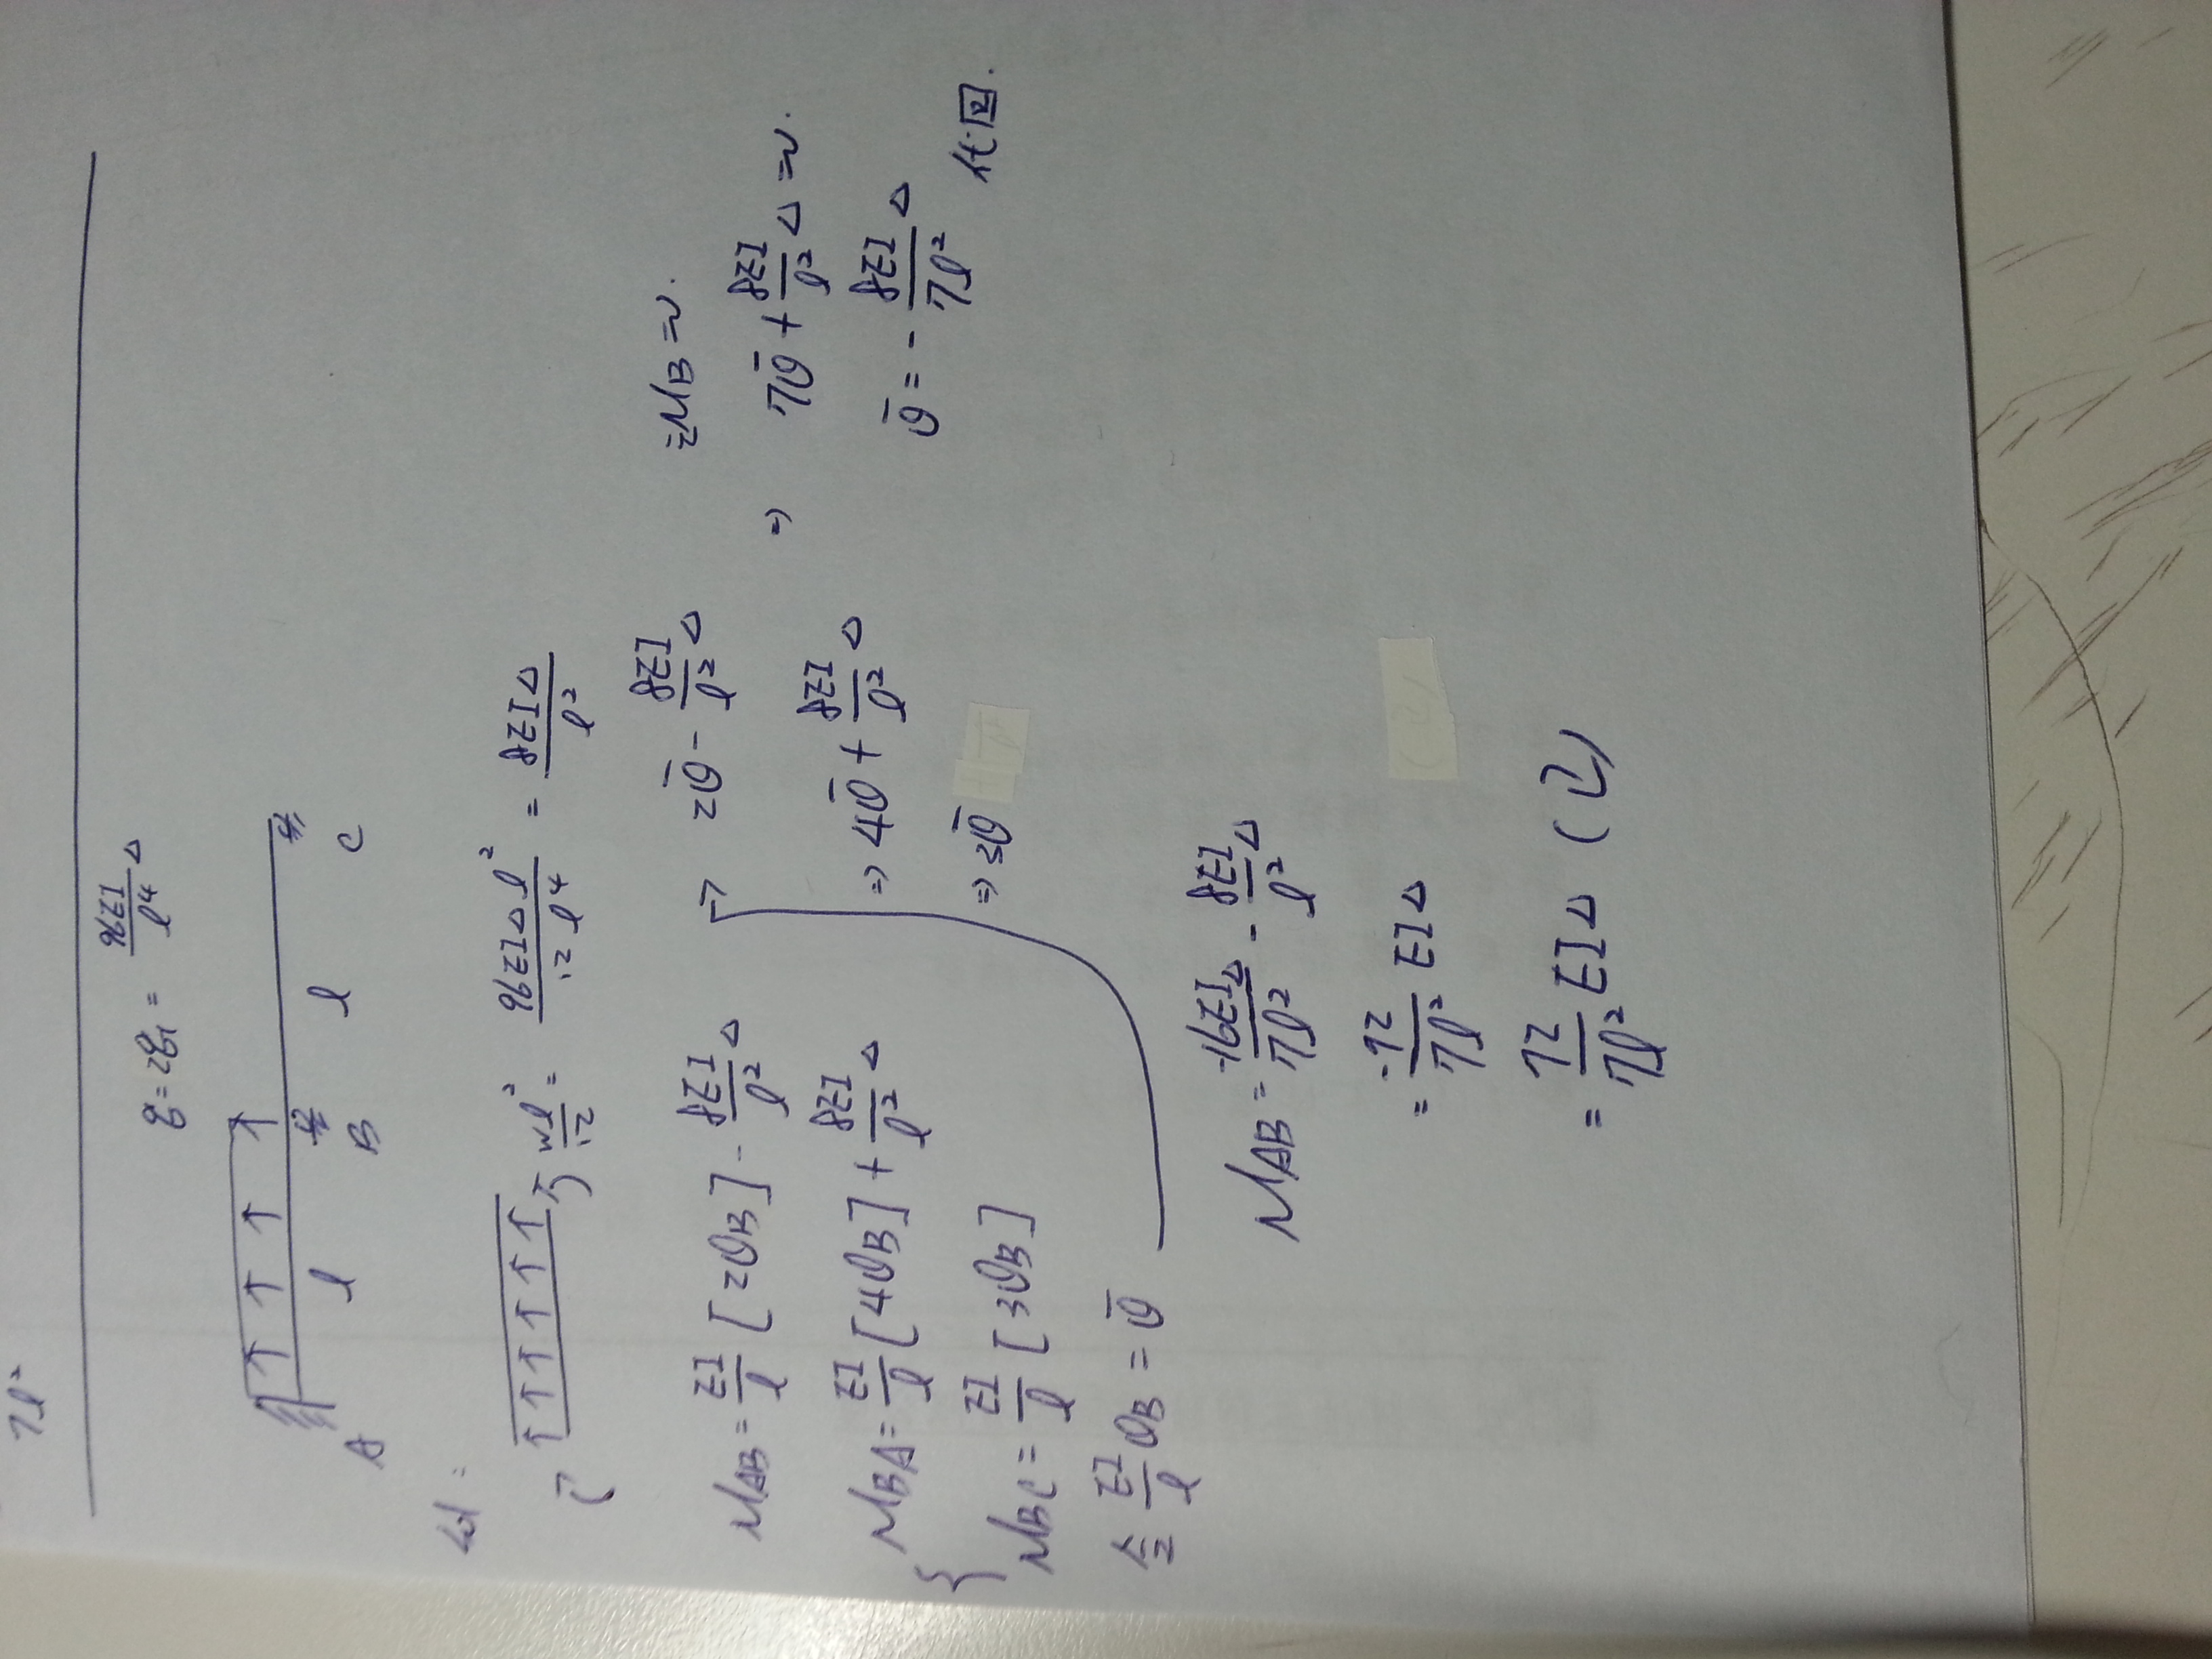 7l²
q = 2q₁ = 96EI/l⁴ Δ
A l B l C
wl²/12 = 96EIΔl²/12l⁴ = 8EIΔ/l²
M_AB = EI/l [2θ_B] - 8EI/l² Δ ⇒ 2θ̄ - 8EI/l² Δ
M_BA = EI/l [4θ_B] + 8EI/l² Δ ⇒ 4θ̄ + 8EI/l² Δ
M_BC = EI/l [3θ_B] ⇒ 3θ̄
令 EI/l θ_B = θ̄
ΣM_B = 0.
⇒ 7θ̄ + 8EI/l² Δ = 0.
θ̄ = - 8EI/7l² Δ 代回.
M_AB = -16EIΔ/7l² - 8EI/l² Δ
= -72/7l² EIΔ
= 72/7l² EIΔ ( )